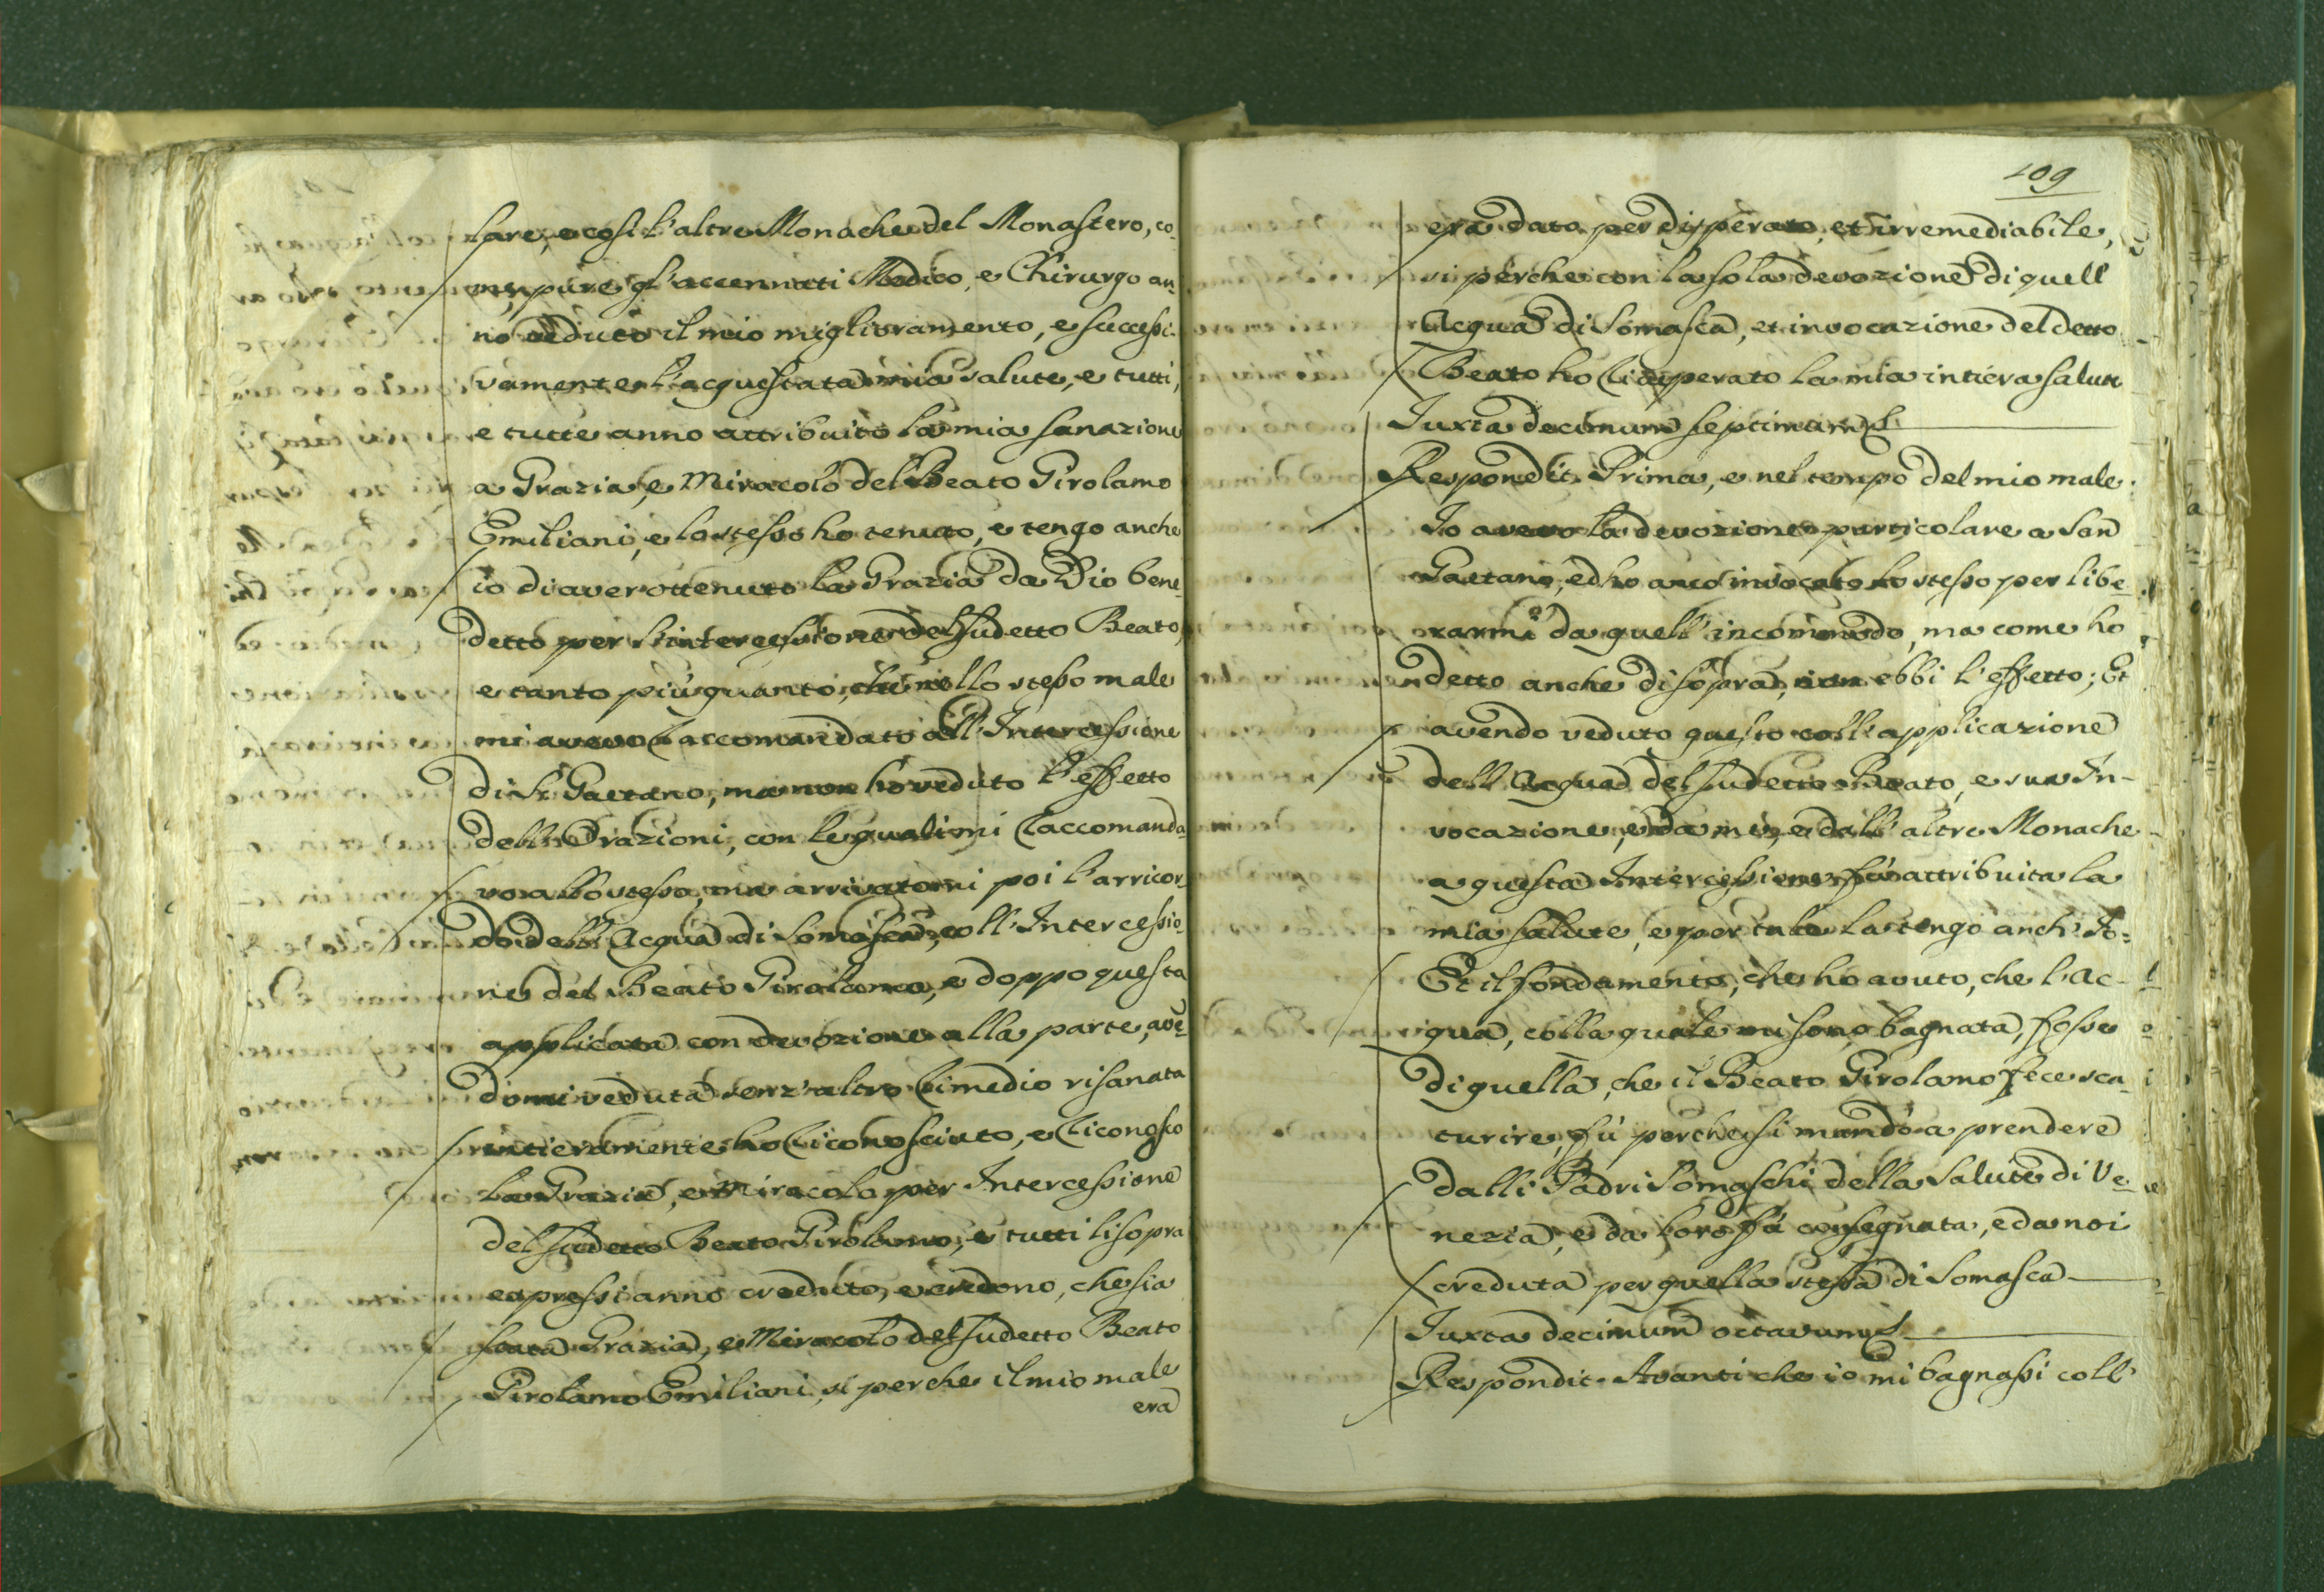 sare, e così l'altre Monache del Monastero, co-
me pure gl'accennati Medico, e Chirurgo an-
no veduto il mio miglioramento, e successi-
vamente l'acquistata mia salute, e tutti,
e tutte anno attribuito la mia sanazione
a Grazia, e Miracolo del Beato Girolamo
Emiliani, e lo stesso ho tenuto, e tengo anche
io di aver ottenuto la Grazia da Dio bene-
detto per l'intercessione del sudetto Beato,
e tanto più quanto, che nello stesso male
mi avevo raccomandato all'Intercessione
di S. Gaetano, ma non ho veduto l'effetto
dell'Orazioni, con le quali mi raccomanda-
vo allo stesso, ma arrivatomi poi l'arricor-
do dell'Acqua di Somasca, coll'Intercessio-
ne del Beato Girolamo, e doppo questa
applicata con devozione alla parte, avẽ-
domi veduta senz'altro rimedio risanata
intieramente ho riconosciuto, e riconosco
la Grazia, e Miracolo per Intercessione
del sudetto Beato Girolamo, e tutti li sopra
espressi anno creduto, e credono, che sia
stata Grazia, e Miracolo del sudetto Beato
Girolamo Emiliani, sì perche il mio male
era
109
era dato per disperato, et irremediabile,
sì perche con la sola devozione di quell'
Acqua di Somasca, et invocazione del detto
Beato ho ricuperato la mia intiera salute
Iuxta decimum septimum
Respondit. Prima, e nel tempo del mio male
Io avevo la devozione particolare a San
Gaetano, ed ho anco invocato lo stesso per libe-
rarmi da quell'incommodo, ma come ho
detto anche di sopra, non ebbi l'effetto; Et
avendo veduto questo coll'applicazione
dell'Acqua del sudetto Beato, e sua In-
vocazione, e da me, e dall'altre Monache
a questa Intercessione fù attribuita la
mia salute, e per tale la tengo anch'Io:
Et il fondamento, che ho avuto, che l'Ac-
qua, colla quale mi sono bagnata, fosse
di quella, che il Beato Girolamo fece sca-
turire, fù perche si mandò a prendere
dalli Padri Somaschi della Salute di Ve-
nezia, e da loro fù consegnata, e da noi
creduta per quella stessa di Somasca
Iuxta decimum octavum
Respondit. Avanti che io mi bagnassi coll'